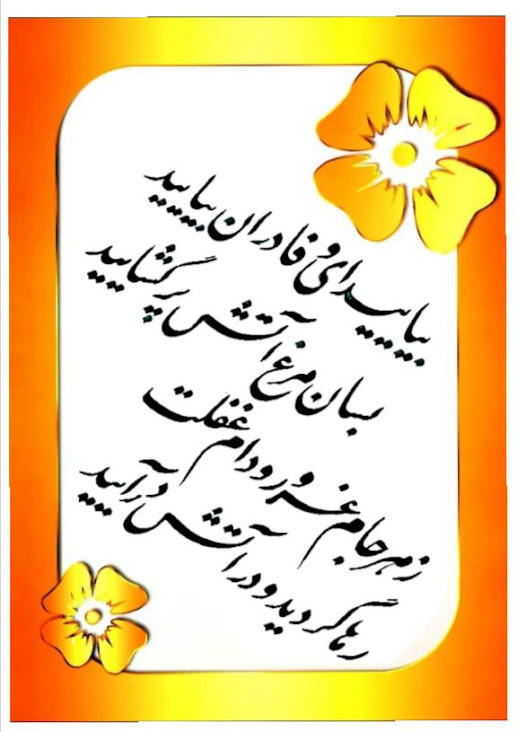 بیایید ای وفاداران بیایید
بسان مرغ آتش پر گشایید
ز هر جام غرور و دام غفلت
رها گردید و در آتش درآیید